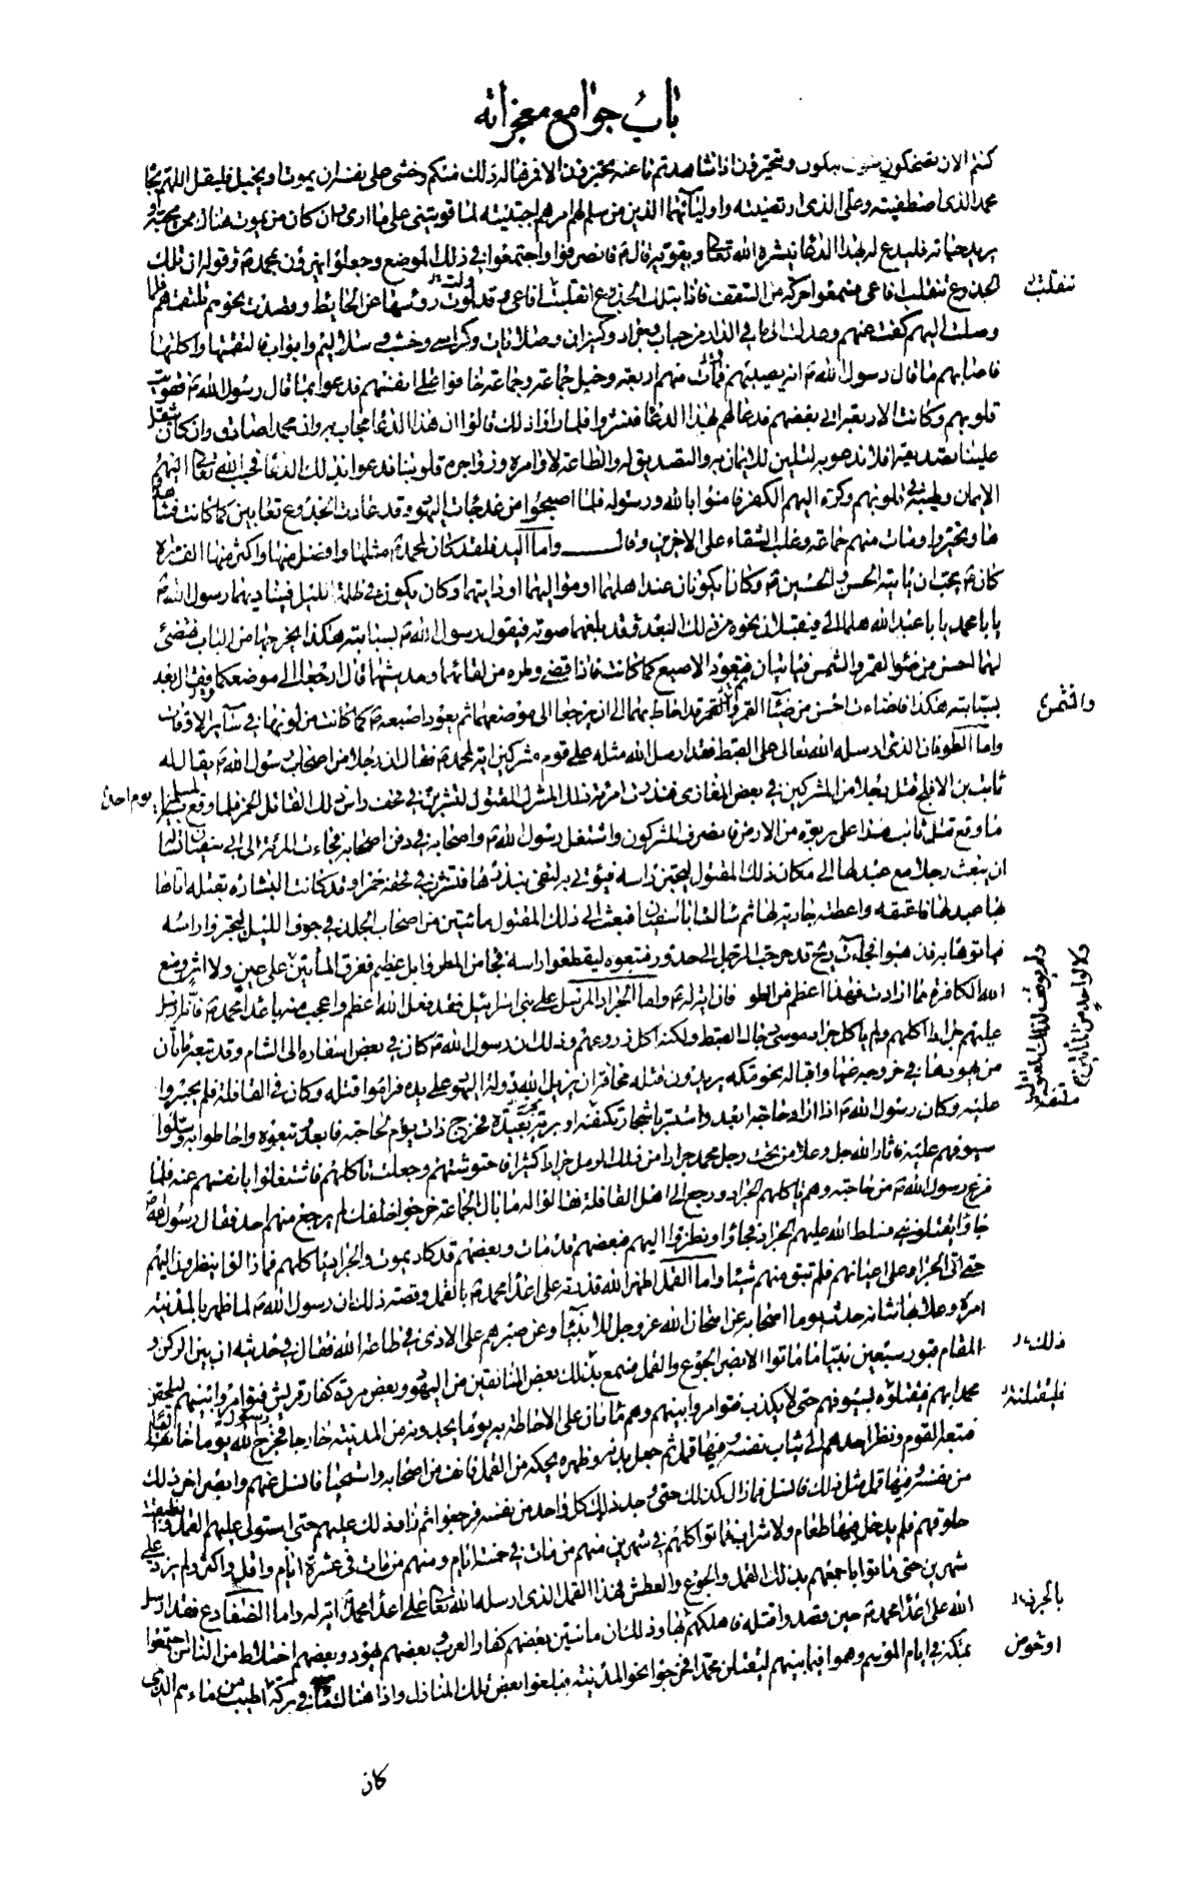 باب جوامع معجزاته
كنتم الان تضحكون وتتحيرون اذا شاهدتم ما عنه يخبرون الا فمن هاله ذلك منكم وخشى على نفسه ان يموت او يخبل فليقل اللهم بجاه
محمد الذى اصطفيته وعلى الذى ارتضيته واوليائهما الذين من سلم لهم امرهم اجتبيته لما قويتنى على ما ارى وان كان من يموت هناك ممن يحبه او
يريد حياته فليدع له بهذا الدعاء ينشره الله تعالى ويقويه قال فانصرفوا واجتمعوا فى ذلك الموضع وجعلوا يهزؤن بمحمد وقوله ان تلك
الجذوع تنقلب افاعى فسمعوا حركة من السقف فاذا بتلك الجذوع انقلبت افاعى وقد لوت رؤسها عن الحائط وقصدت نحوهم تلتقمهم فلما
وصلت اليهم كفت عنهم وعدلت الى ما فى الدار من حباب وجرار وكيزان وصلايات وكراسى وخشب وسلاليم وابواب فالتقمتها واكلتها
فاصابهم ما قال رسول الله انه يصيبهم فمات منهم اربعة وخبل جماعة وجماعة خافوا على انفسهم فدعوا بما قال رسول الله فقويت
قلوبهم وكانت الاربعة اتى بعضهم فدعا لهم بهذا الدعاء فنشروا فلما راوا ذلك قالوا ان هذا الدعاء مجاب به وان محمدا صادق وان كان يثقل
علينا تصديقه افلا ندعو به لتلين للايمان به والتصديق له والطاعة لاوامره وزواجره قلوبنا فدعوا بذلك الدعاء فحبب الله تعالى اليهم
الايمان وطيبه فى قلوبهم وكره اليهم الكفر فامنوا بالله ورسوله فلما اصبحوا من غد جاءت اليهود وقد عادت الجذوع ثعابين كما كانت فشاهدوها
وتحيروا ومات منهم جماعة وغلب الشقاء على الاخرين وقال واما اليد فلقد كان لمحمد مثلها وافضل منها واكثر منها الف مرة
كان يحب ان ياتيه الحسن والحسين وكانا يكونان عند اهلهما او مواليهما او دايتهما وكان يكون فى ظلمة الليل فيناديهما رسول الله
يا با محمد يا با عبد الله هلما الى فيقبلان نحوه من ذلك البعد قد بلغهما صوته فيقول رسول الله بسبابته هكذا يخرجها من الباب فتضئ
لهما احسن من ضوء القمر والشمس فياتيان فتعود الاصبع كما كانت فاذا قضى وطره من لقائهما وحديثهما قال ارجعا الى موضعكما وقال بعد
بسبابته هكذا فاضاءت احسن من ضياء القمر والشمس قد احاط بهما الى ان يرجعا الى موضعهما ثم تعود اصبعه كما كانت من لونها فى سائر الاوقات
واما الطوفان الذى ارسله الله تعالى على القبط فقد ارسل الله مثله على قوم مشركين اية لمحمد فقال ان رجلا من اصحاب رسول الله يقال له
ثابت بن الافلح قتل رجلا من المشركين فى بعض المغازى فنذرت امراة ذلك المشرك المقتول لتشربن فى قحف راس ذلك القاتل الخمر فلما وقع بالمسلمين يوم احد
ما وقع قتل ثابت هذا على ربوة من الارض فانصرف المشركون واشتغل رسول الله واصحابه فى دفن اصحابه فجاءت المراة الى ابى سفيان تساله
ان يبعث رجلا مع عبد لها الى مكان ذلك المقتول ليحتز راسه فيؤتى به لتفى بنذرها فتشرب فى قحفه خمرا وقد كانت البشارة بقتله اتاها
بها عبد لها فاعتقته واعطته جارية لها ثم سالت ابا سفيان فبعث الى ذلك المقتول مائتين من اصحاب الجلد فى جوف الليل ليحتزوا راسه
فياتوها به فذهبوا فجاءت ريح فدحرجت الرجل الى حدور فتبعوه ليقطعوا راسه فجاء من المطر وابل عظيم فغرق المائتين
على عين ولا اثر ومنع
الله الكافرة مما ارادت فهذا اعظم من الطوفان اية له واما الجراد المرسل على بنى اسرائيل فقد فعل الله اعظم واعجب منه باعداء محمد فانه ارسل
عليهم جرادا اكلهم ولم ياكل جراد موسى رجال القبط ولكنه اكل زروعهم وذلك ان رسول الله كان فى بعض اسفاره الى الشام وقد تبعه مايتان
من يهودها فى خروجه عنها واقباله نحو مكة يريدون قتله مخافة ان يزيل الله دولة اليهود على يده فراموا قتله وكان فى القافلة فلم يجسروا
عليه وكان رسول الله اذا اراد حاجة ابعد واستتر باشجار تكنفه او برية بعيدة فخرج ذات يوم لحاجته فابعد وتبعوه واحاطوا به وسلوا
سيوفهم عليه فاثار الله جل وعلا من تحت رجل محمد من ذلك الرمل جرادا كثيرا فاحتوشتهم وجعلت تاكلهم فاشتغلوا بانفسهم عنه فلما
فرغ رسول الله من حاجته وهم ياكلهم الجراد ورجع الى اهل القافلة فقالوا له ما بال الجماعة خرجوا خلفك لم يرجع منهم احد فقال رسول الله
جاؤا يقتلونى فسلط الله عليهم الجراد فجاؤا ونظروا اليهم فبعضهم قد مات وبعضهم قد كاد يموت والجراد ياكلهم فما زالوا ينظرون اليهم
حتى اتى الجراد على اعيانهم فلم تبق منهم شيئا واما القمل اظهر الله قدرته على اعداء محمد بالقمل وقصة ذلك ان رسول الله لما ظهر بالمدينة
امره وعلا بها شانه حدث يوما اصحابه عن امتحان الله عز وجل للانبياء وعن صبرهم على الاذى فى طاعة الله فقال فى حديثه ان بين الركن و
المقام قبور سبعين نبيا ما ماتوا الا بضر الجوع والقمل فسمع بذلك بعض المنافقين من اليهود وبعض مردة كفار قريش فتوامروا بينهم ليلحقن
محمد بهم فليقتلنه بسيوفهم حتى لا يكذب فتوامروا بينهم وهم مائتان على الاحاطة به يوما يجدونه من المدينة خارجا فخرج رسول الله يوما خاليا
فتبعه القوم ونظر احدهم الى ثياب نفسه وفيها قمل ثم جعل بدنه وظهره يحكه من القمل فانف من اصحابه واستحيا فانسل عنهم وابصر اخر ذلك
من نفسه وفيها قمل مثل ذلك فانسل فما زال كذلك حتى وجد ذلك كل واحد من نفسه فرجعوا ثم زاد ذلك عليهم حتى استولى عليهم القمل وانطبقت
حلوقهم فلم يدخل فيها طعام ولا شراب فماتوا كلهم فى شهرين منهم من مات فى خمسة ايام ومنهم من مات فى عشرة ايام واقل واكثر ولم يزد على
شهرين حتى ماتوا باجمعهم بذلك القمل والجوع والعطش فهذا القمل الذى ارسله الله تعالى على اعداء محمد اية له واما الضفادع فقد ارسل
الله على اعداء محمد حين قصدوا قتله فاهلكهم بها وذلك ان مائتين بعضهم كفار العرب وبعضهم يهود وبعضهم اخلاط من الناس اجتمعوا
بمكة فى ايام الموسم وهموا فيما بينهم ليقتلن محمدا فخرجوا نحو المدينة فبلغوا بعض تلك المنازل واذا هناك ماء فى بركة اطيب من ماءهم الذى
كان
تنقلب
والشمس
ذلك
فليقتلنه
او حوض